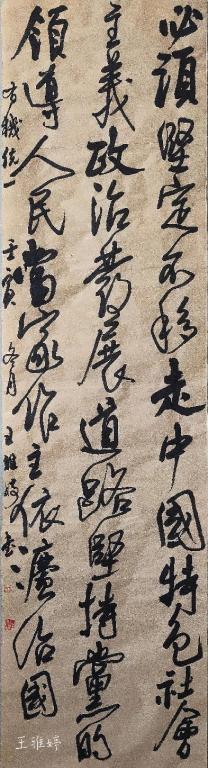 必須堅定不移走中國特色社會
主義政治發展道路堅持黨的
領導人民當家作主依法治國
有機統一 壬寅 冬月 王雅婷書
王雅婷